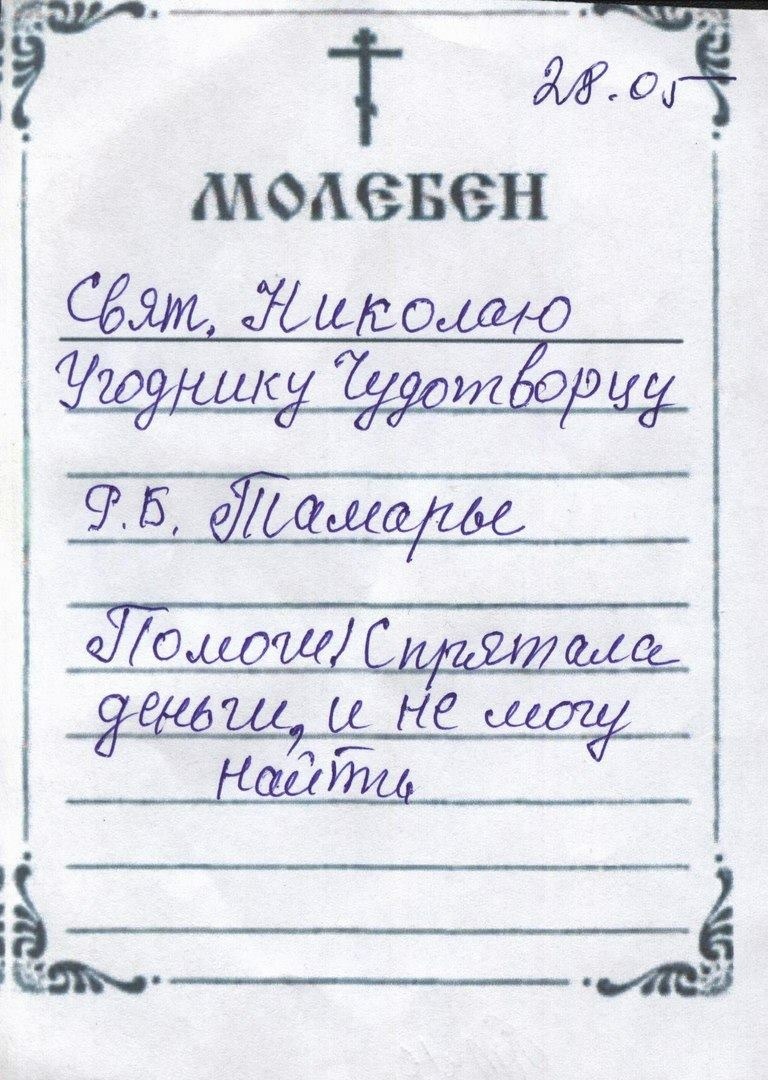 28.05
МОЛЕБЕН
Свят. Николаю
Угоднику Чудотворцу
Р.Б. Тамары
Помоги! Спрятала
деньги, и не могу
найти